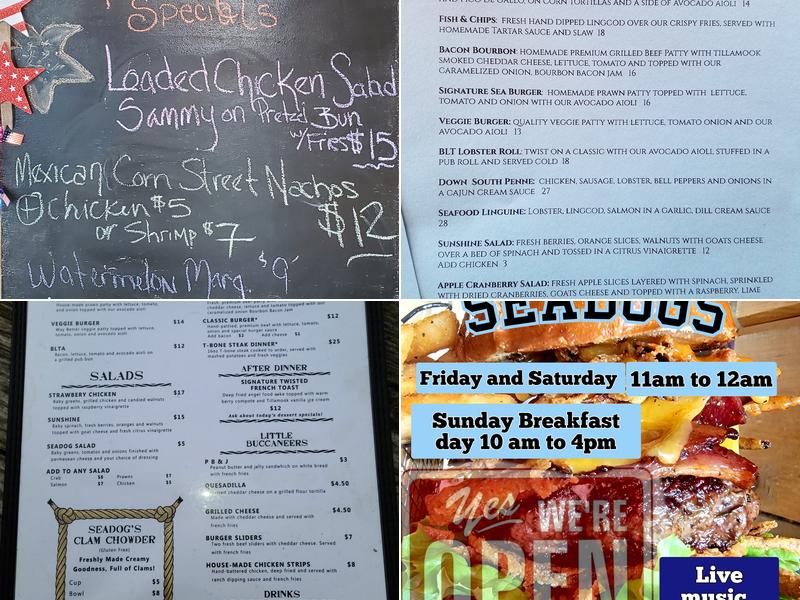 Specials
Loaded Chicken Salad
Sammy on Pretzel Bun
w/Fries $15
Mexican Corn Street Nachos
+ Chicken $5
or Shrimp $7
$12
Watermelon Marg. $9
AND PICO DE GALLO, ON CORN TORTILLAS AND A SIDE OF AVOCADO AIOLI 14
FISH & CHIPS: FRESH HAND DIPPED LINGCOD OVER OUR CRISPY FRIES, SERVED WITH
HOMEMADE TARTAR SAUCE AND SLAW 18
BACON BOURBON: HOMEMADE PREMIUM GRILLED BEEF PATTY WITH TILLAMOOK
SMOKED CHEDDAR CHEESE, LETTUCE, TOMATO AND TOPPED WITH OUR
CARAMELIZED ONION, BOURBON BACON JAM 16
SIGNATURE SEA BURGER: HOMEMADE PRAWN PATTY TOPPED WITH LETTUCE,
TOMATO AND ONION WITH OUR AVOCADO AIOLI 16
VEGGIE BURGER: QUALITY VEGGIE PATTY WITH LETTUCE, TOMATO ONION AND OUR
AVOCADO AIOLI 13
BLT LOBSTER ROLL: TWIST ON A CLASSIC WITH OUR AVOCADO AIOLI, STUFFED IN A
PUB ROLL AND SERVED COLD 18
DOWN SOUTH PENNE: CHICKEN, SAUSAGE, LOBSTER, BELL PEPPERS AND ONIONS IN
A CAJUN CREAM SAUCE 27
SEAFOOD LINGUINE: LOBSTER, LINGCOD, SALMON IN A GARLIC, DILL CREAM SAUCE
28
SUNSHINE SALAD: FRESH BERRIES, ORANGE SLICES, WALNUTS WITH GOATS CHEESE
OVER A BED OF SPINACH AND TOSSED IN A CITRUS VINAIGRETTE 12
ADD CHICKEN 3
APPLE CRANBERRY SALAD: FRESH APPLE SLICES LAYERED WITH SPINACH, SPRINKLED
WITH DRIED CRANBERRIES, GOATS CHEESE AND TOPPED WITH A RASPBERRY, LIME
House-made prawn patty with lettuce, tomato,
and onion topped with our avocado aioli
VEGGIE BURGER $14
Way Better veggie patty topped with lettuce,
tomato, onion and avocado aioli
BLTA $12
Bacon, lettuce, tomato and avocado aioli on
a grilled pub bun
SALADS
STRAWBERY CHICKEN $17
Baby greens, grilled chicken and candied walnuts
topped with raspberry vinaigrette
SUNSHINE $15
Baby spinach, fresh berries, oranges and walnuts
topped with goat cheese and fresh citrus vinaigrette
SEADOG SALAD $5
Baby greens, tomato and onions finished with
parmesean cheese and your choice of dressing
ADD TO ANY SALAD
Crab $8 Prawns $7
Salmon $7 Chicken $5
SEADOG'S
CLAM CHOWDER
(Gluten Free)
Freshly Made Creamy
Goodness, Full of Clams!
Cup $5
Bowl $8
cheddar cheese, lettuce and tomato topped with our
caramelized onion Bourbon Bacon Jam
CLASSIC BURGER* $12
Hand-pattied, premium beef with lettuce, tomato,
onion and special burger sauce
Add bacon $2 Add cheese $1
T-BONE STEAK DINNER* $25
16oz T-bone steak cooked to order, served with
mashed potatoes and fresh veggies
AFTER DINNER
SIGNATURE TWISTED
FRENCH TOAST
Deep fried angel food wake topped with warm
berry compote and Tillamook vanilla ice cream
$12
Ask about today's dessert specials!
LITTLE
BUCCANEERS
P B & J $3
Peanut butter and jelly sandwich on white bread
with french fries
QUESADILLA $4.50
cheddar cheese on a grilled flour tortilla
GRILLED CHEESE $4.50
Made with cheddar cheese and served with
french fries
BURGER SLIDERS $7
Two fresh beef sliders with cheddar cheese. Served
with french fries
HOUSE-MADE CHICKEN STRIPS $8
Hand-battered chicken, deep fried and served with
ranch dipping sauce and french fries
DRINKS
SEADOGS
Friday and Saturday 11am to 12am
Sunday Breakfast
day 10 am to 4pm
Yes
WE'RE
OPEN
Live
music